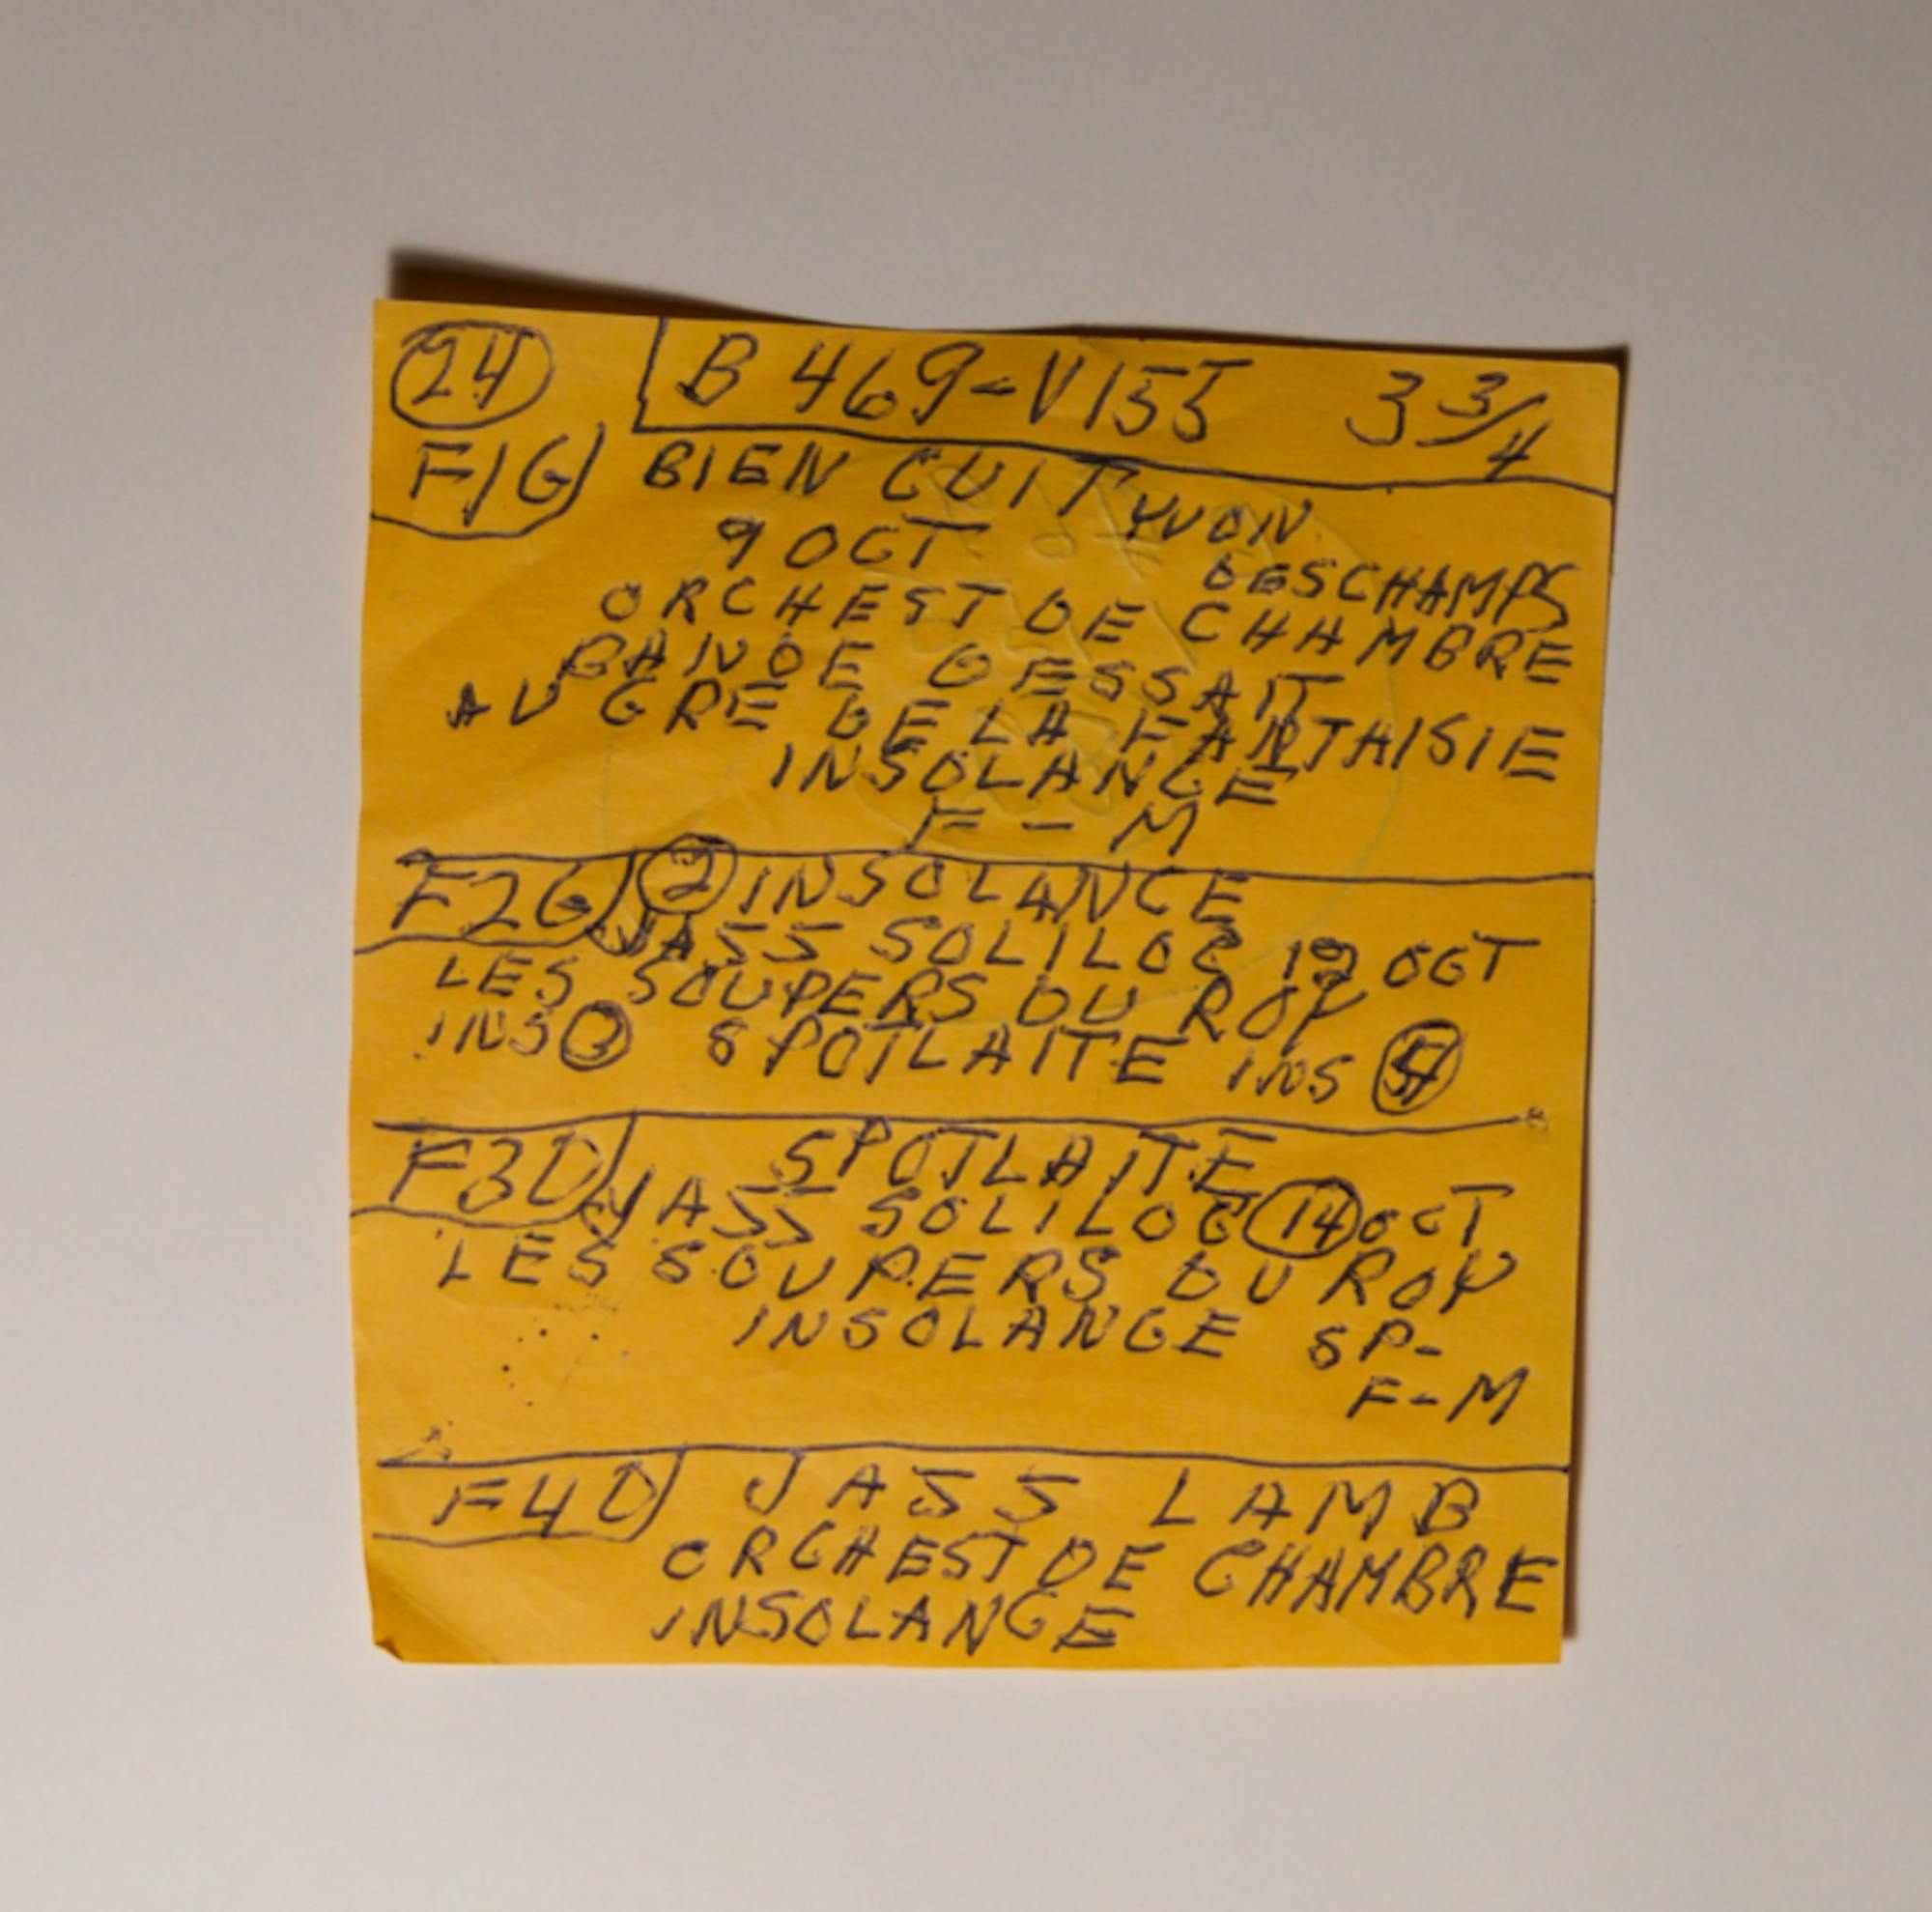 24 B 469-V155 3 3/4
F1G BIEN CUIT YVON
9 OCT DESCHAMPS
ORCHEST DE CHAMBRE
BANDE DESSAIT
AU GRE DE LA FANTHAISIE
INSOLANCE
F - M
F2G 2 INSOLANCE
JASS SOLILOC OCT
LES SOUPERS DU ROY
INS 3 SPOTLAITE INS
F3D SPOTLAITE
JASS SOLILOC 14 OCT
LES SOUPERS DU ROY
INSOLANCE SP-
F-M
F4D JASS LAMB
ORCHEST DE CHAMBRE
INSOLANCE